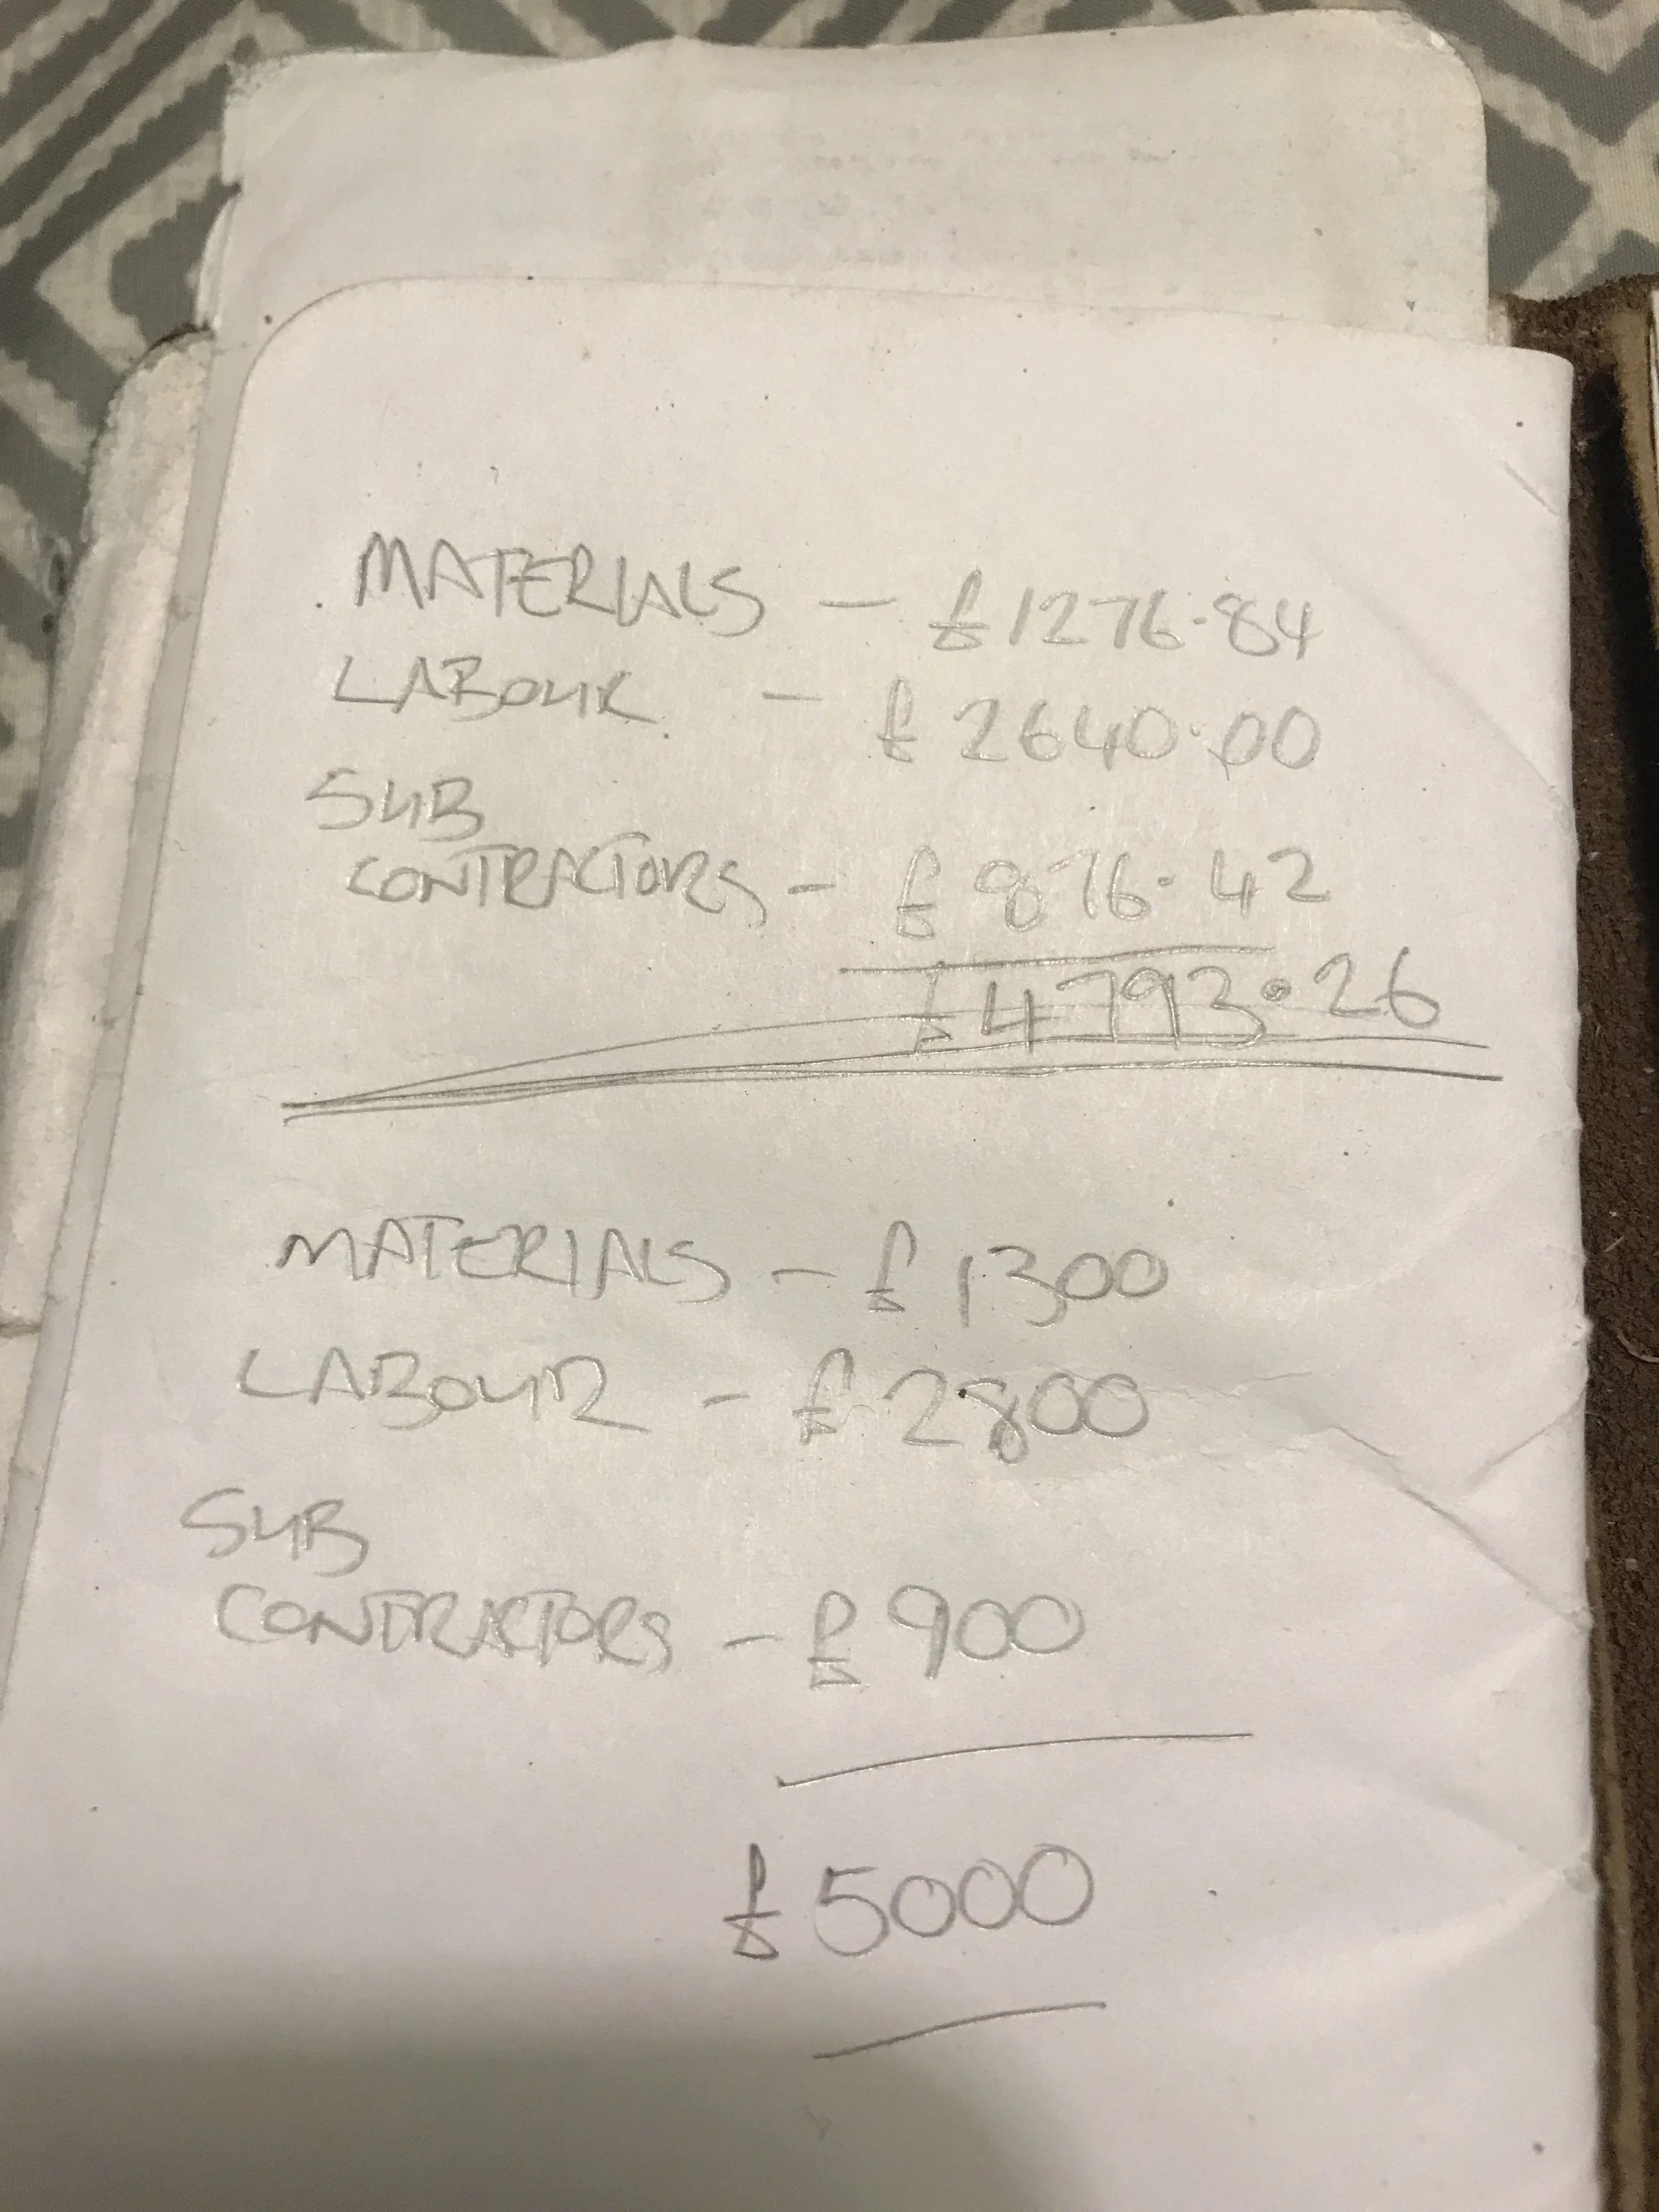 MATERIALS - £1276.84
LABOUR - £2640.00
SUB
CONTRACTORS - £876.42
£4793.26
MATERIALS - £1300
LABOUR - £2800
SUB
CONTRACTORS - £900
£5000